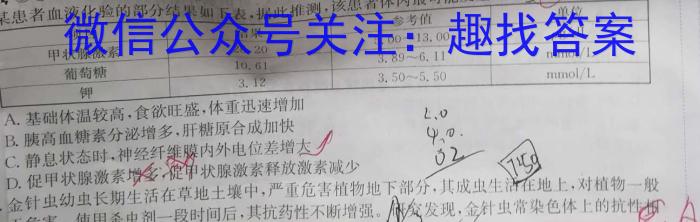 某患者血液化验的部分结果如下表,据此推测,该患者体内最可能发
参考值 单位
微信公众号关注：趣找答案
甲状腺激素 .20 00~13.00
葡萄糖 10.61 3.89~6.11 mmol/L
钾 3.12 3.50~5.50 mmol/L
A. 基础体温较高,食欲旺盛,体重迅速增加
B. 胰高血糖素分泌增多,肝糖原合成加快
C. 静息状态时,神经纤维膜内外电位差增大
D. 促甲状腺激素增多,促甲状腺激素释放激素减少
金针虫幼虫长期生活在草地土壤中,严重危害植物地下部分,其成虫生活在地上,对植物一般
无危害。使用杀虫剂一段时间后,其抗药性不断增强。研究发现,金针虫常染色体上的抗性基